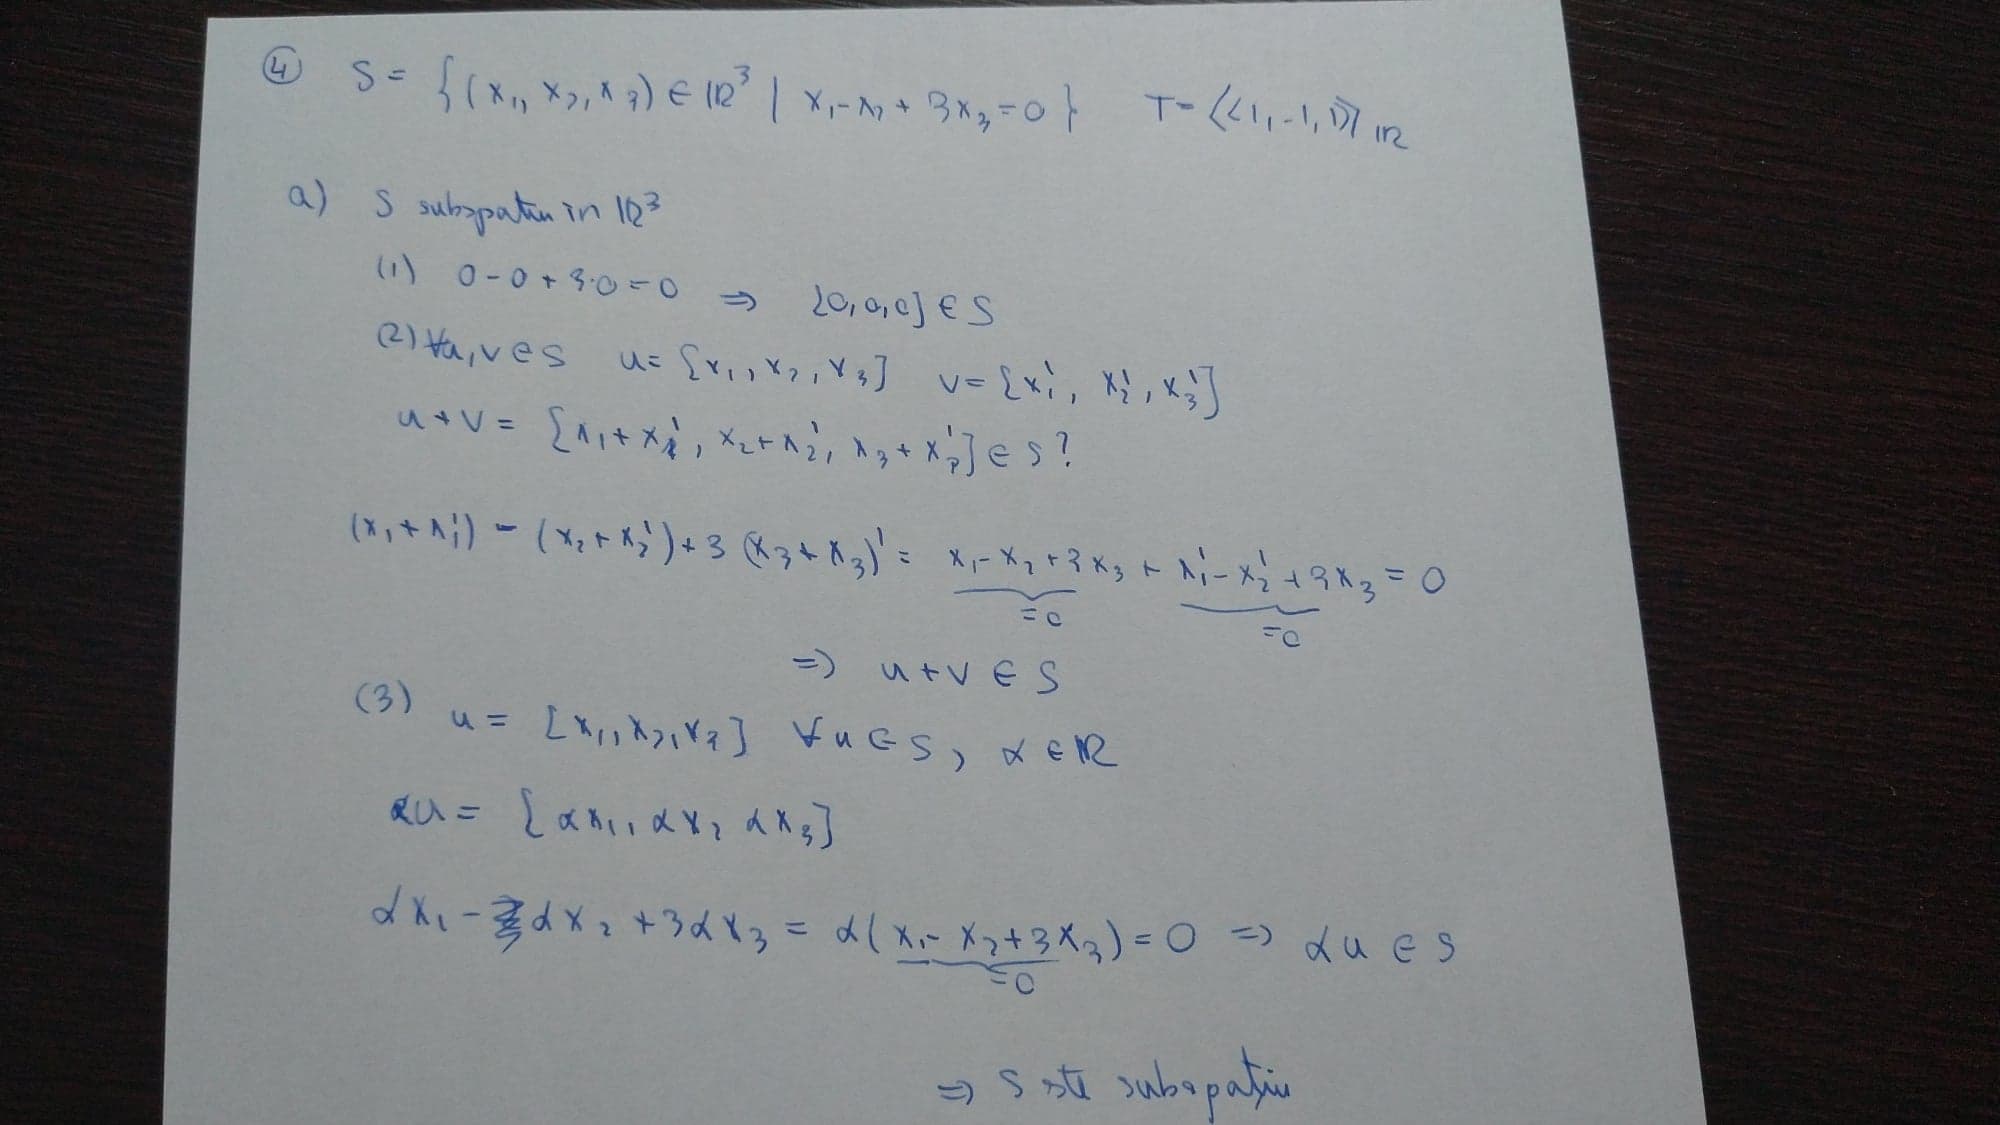 ④ S = {(x₁, x₂, x₃) ∈ ℝ³ | x₁ - x₂ + 3x₃ = 0} T = <(1, -1, 1)>ℝ
a) S subspatiu in ℝ³
(1) 0 - 0 + 3·0 = 0 ⇒ [0, 0, 0] ∈ S
(2) ∀u, v ∈ S u = [x₁, x₂, x₃] v = [x₁', x₂', x₃']
u + v = [x₁ + x₁', x₂ + x₂', x₃ + x₃'] ∈ S?
(x₁ + x₁') - (x₂ + x₂') + 3(x₃ + x₃)' = x₁ - x₂ + 3x₃ + x₁' - x₂' + 3x₃ = 0
=0 =0
⇒ u + v ∈ S
(3) u = [x₁, x₂, x₃] ∀u ∈ S, α ∈ ℝ
αu = [αx₁, αx₂ αx₃]
αx₁ - αx₂ + 3αx₃ = α(x₁ - x₂ + 3x₃) = 0 ⇒ αu ∈ S
=0
⇒ S este subspațiu